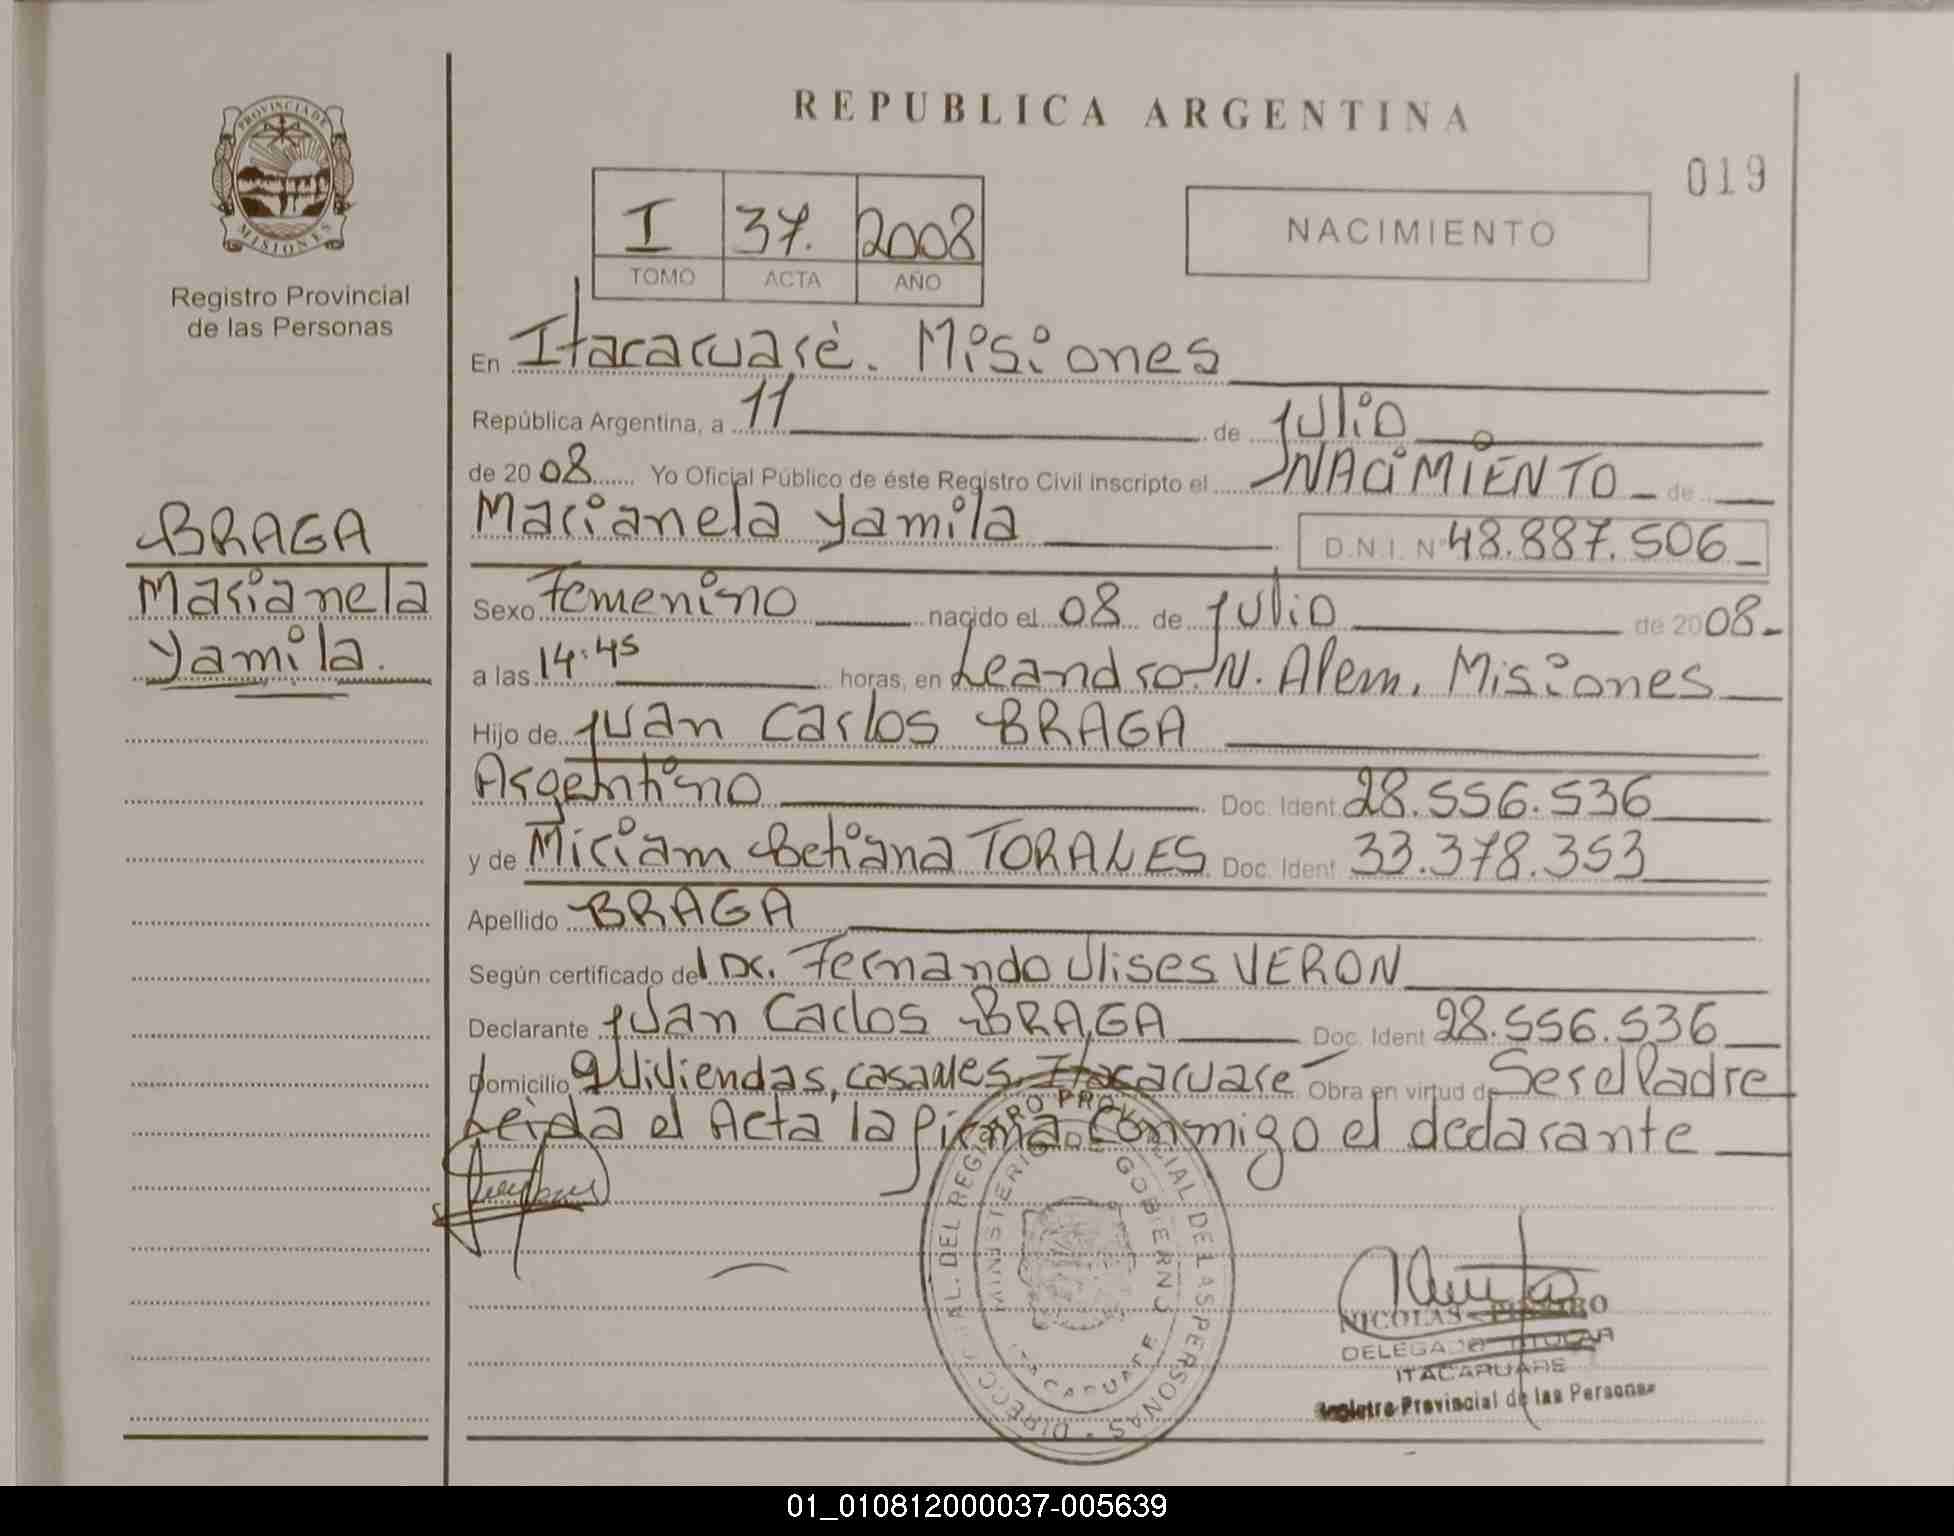 REPUBLICA ARGENTINA
019
PROVINCIA DE
MISIONES
Registro Provincial
de las Personas
I 37. 2008
TOMO ACTA AÑO
NACIMIENTO
En Itacaruaré. Misiones
República Argentina, a 11 de julio
de 2008 Yo Oficial Público de éste Registro Civil inscripto el NACIMIENTO de
Marianela Yamila D.N.I. Nº 48.887.506
BRAGA
Marianela
Yamila.
Sexo Femenino nacido el 08 de julio de 2008
a las 14:45 horas, en Leandro N. Alem, Misiones
Hijo de Juan Carlos BRAGA
Argentino Doc. Ident. 28.556.536
y de Miriam Betiana TORALES Doc. Ident 33.378.353
Apellido BRAGA
Según certificado del Dr. Fernando Ulises VERON
Declarante Juan Carlos BRAGA Doc. Ident 28.556.536
Domicilio Itacaruaré Obra en virtud de Ser el Padre
Leida el Acta la firma conmigo el declarante
REGISTRO PROVINCIAL DE LAS PERSONAS
MINISTERIO DE GOBIERNO
NICOLAS
DELEGADO TITULAR
ITACARUARE
Registro Provincial de las Personas
01_010812000037-005639